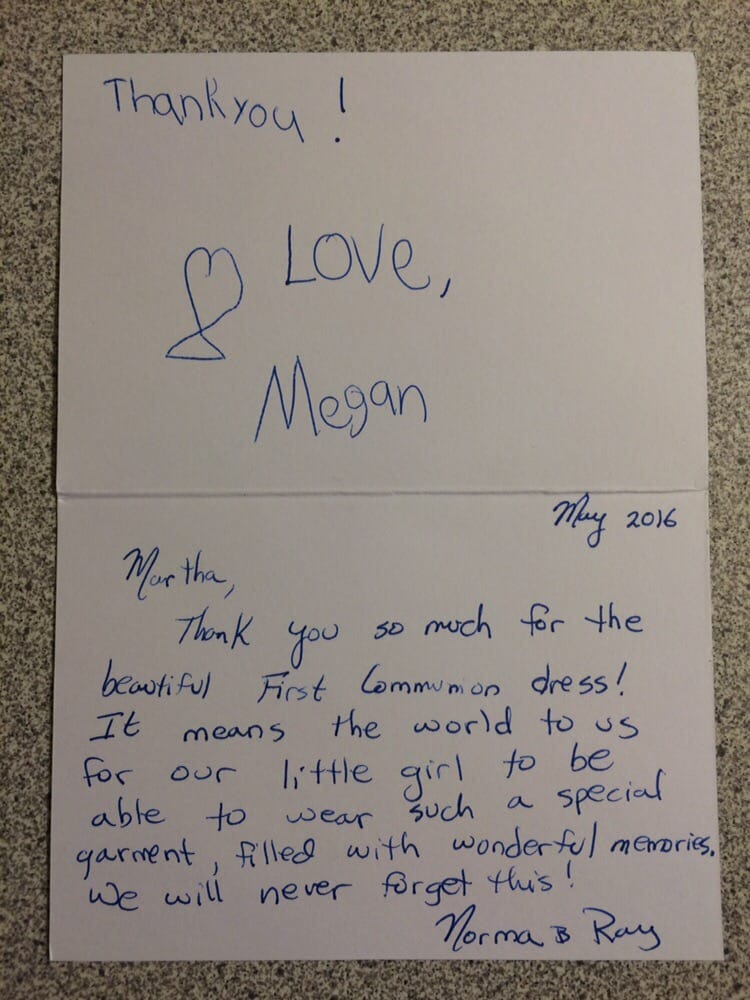 Thankyou!
Love,
Megan
May 2016
Martha,
Thank you so much for the
beautiful First Communion dress!
It means the world to us
for our little girl to be
able to wear such a special
garment, filled with wonderful memories.
We will never forget this!
Norma B Ray